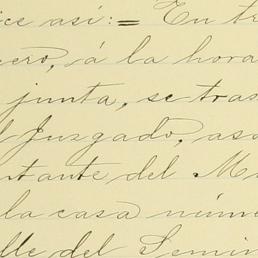 ice así: = En tr
cero, á la hora
junta, se tras
l Juzgado, aso
ntante del M
la casa núme
lle del Semin